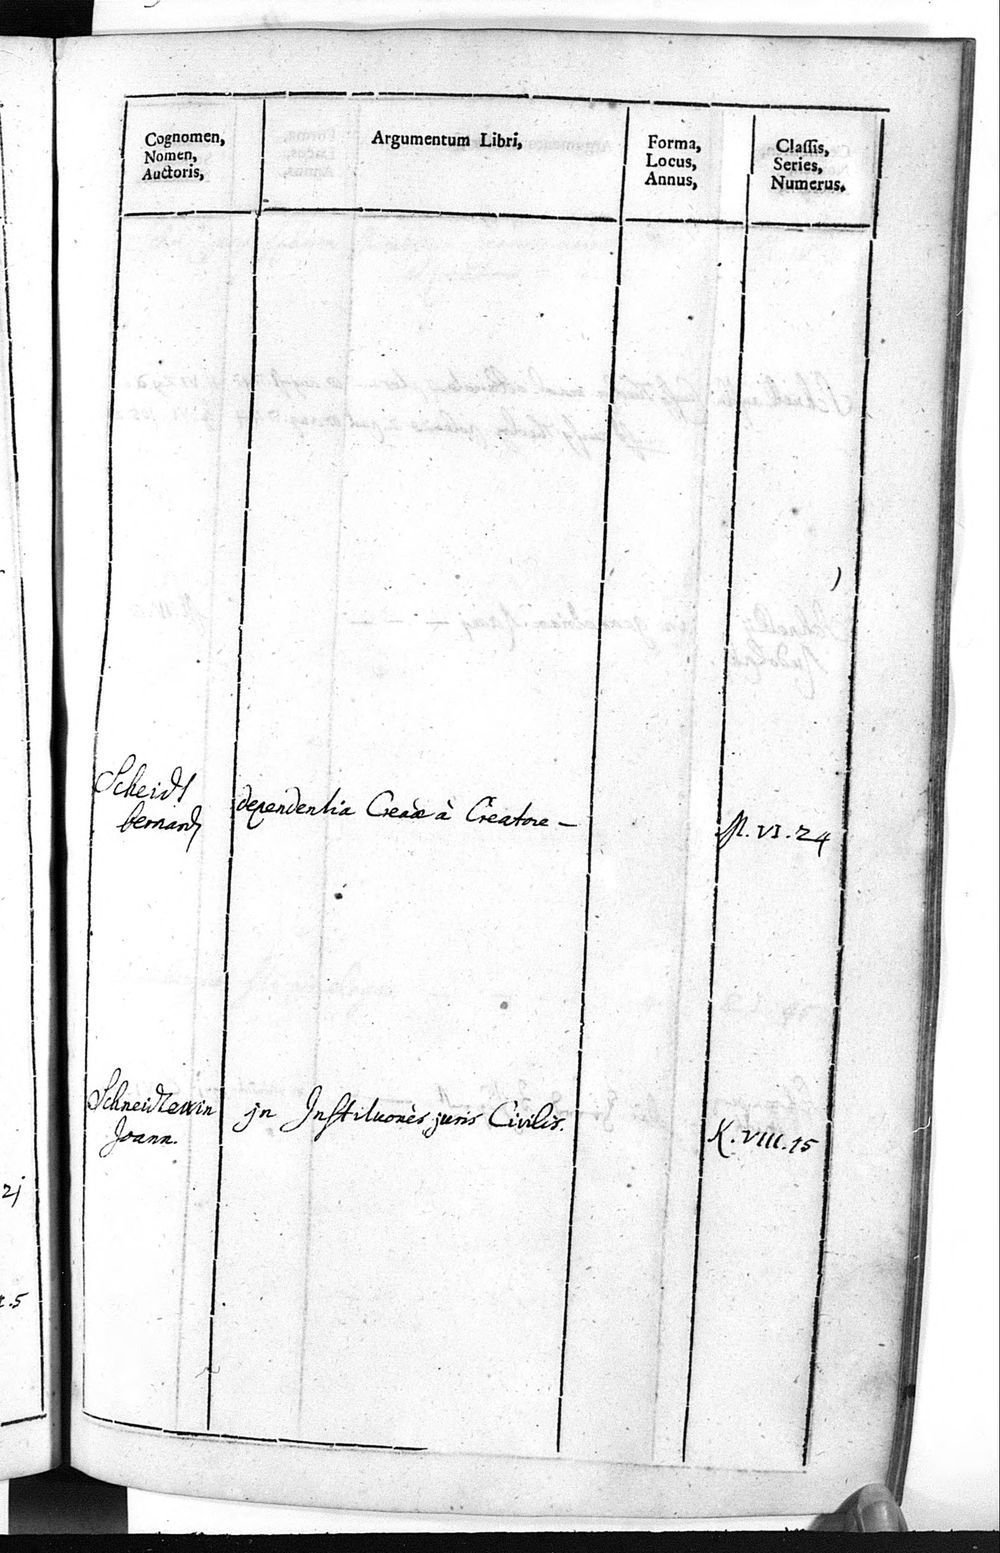 Cognomen,
Nomen,
Auctoris,
Argumentum Libri,
Forma,
Locus,
Annus,
Classis,
Series,
Numerus.
Scheidt
bernard
dependentia Creaæ à Creatore –
VI. 24
Schneidewin
Joann.
jn Instituonès juris Civilis.
K. VIII. 15
2j
. 5